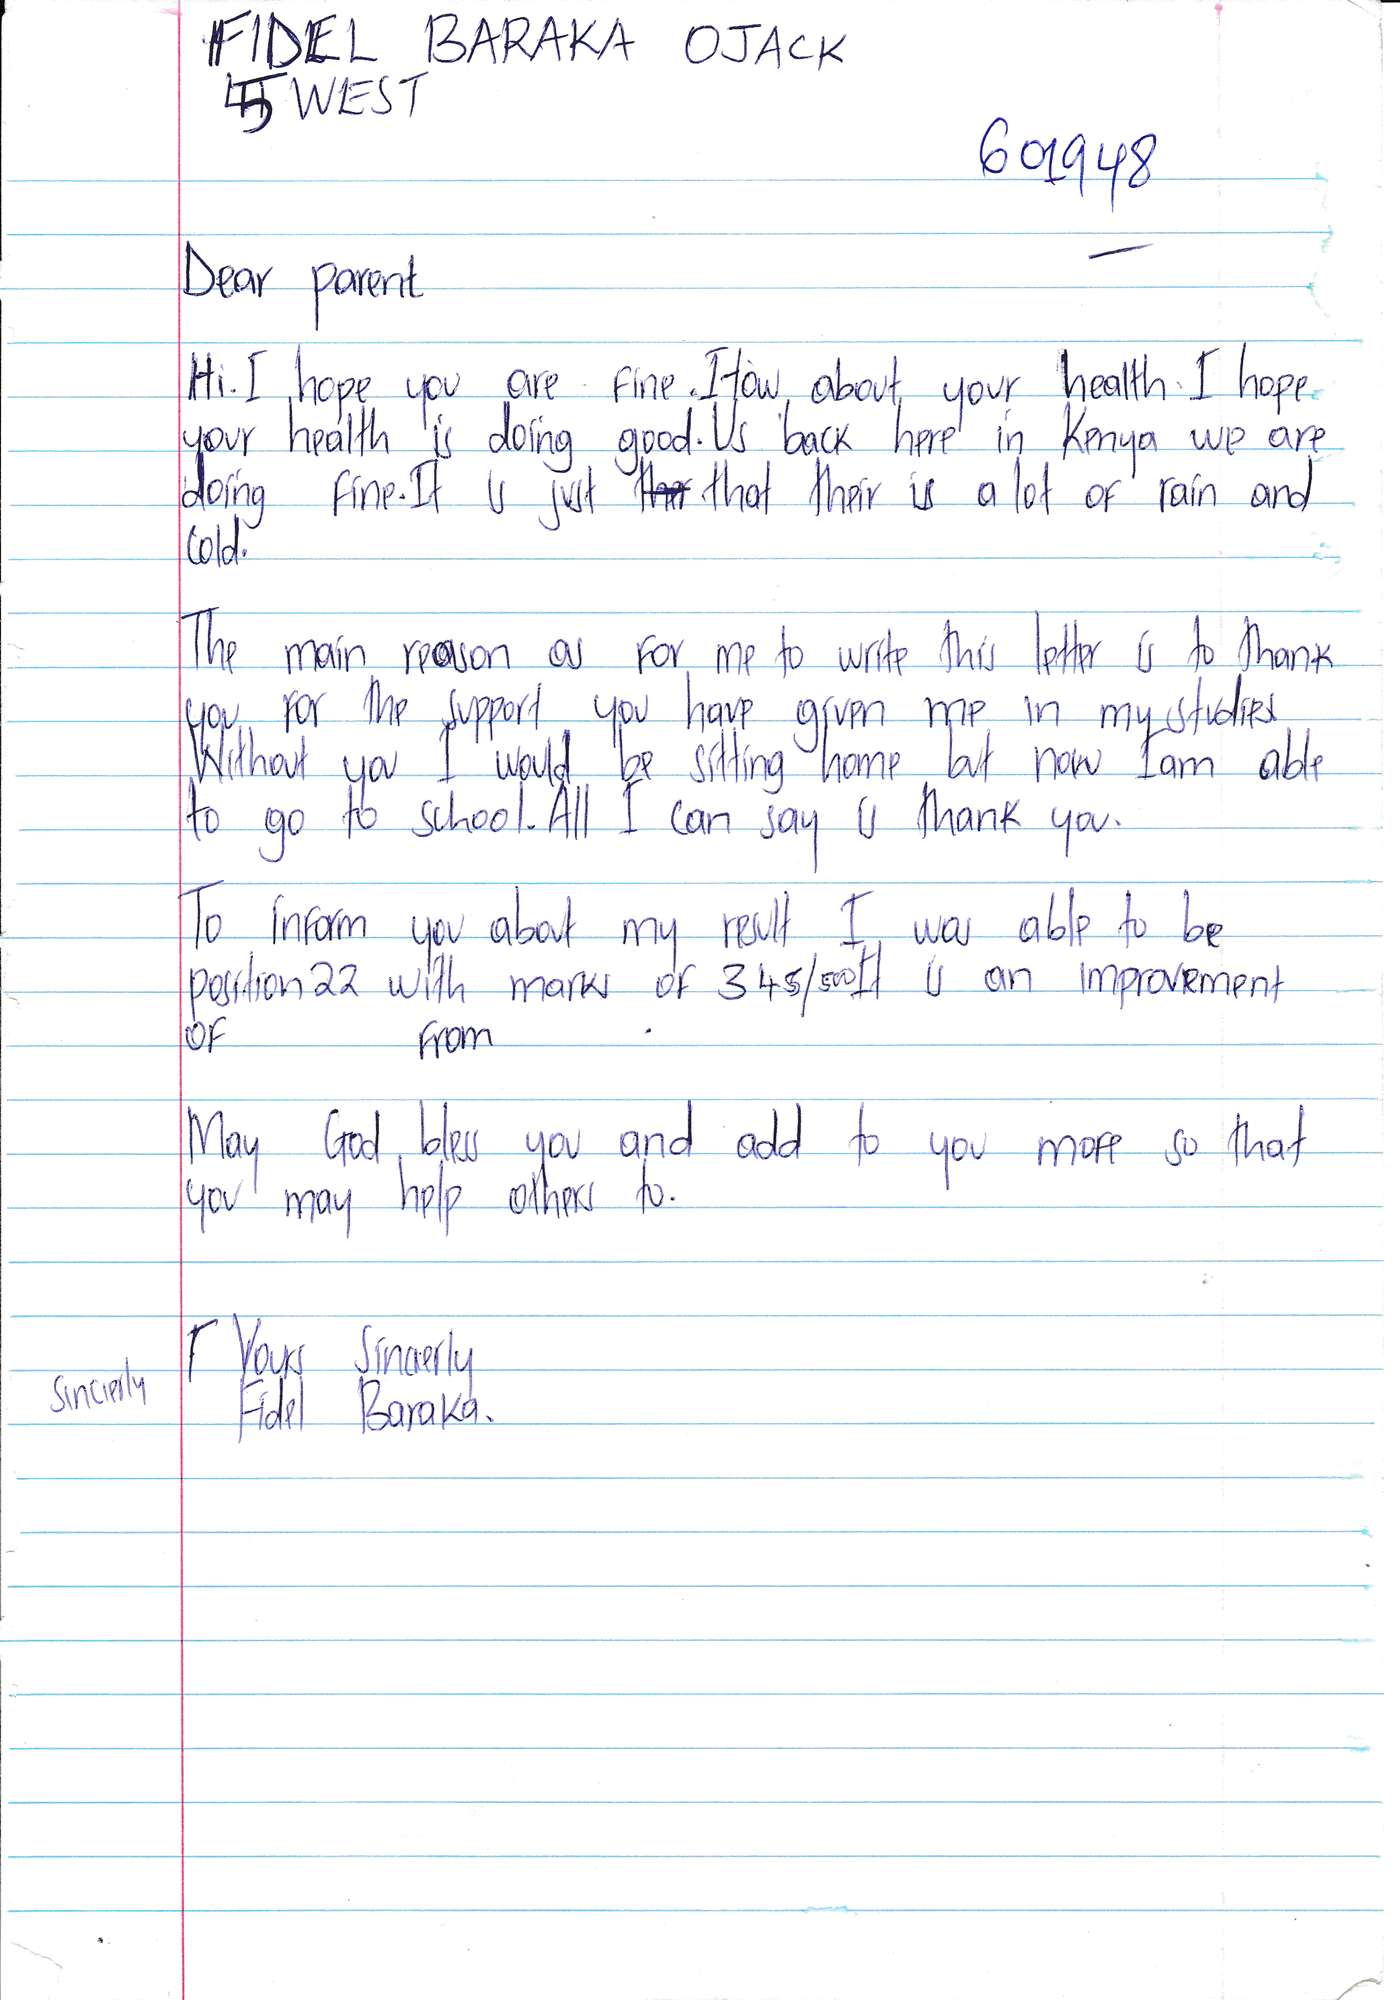 FIDEL BARAKA OJACK
5 WEST
601948
Dear parent
Hi. I hope you are fine. How about your health. I hope
your health is doing good. Us back here in Kenya we are
doing fine. It is just that their is a lot of rain and
cold.
The main reason as for me to write this letter is to thank
you for the support you have given me in my studies
Without you I would be sitting home but now I am able
to go to school. All I can say is thank you.
To inform you about my result I was able to be
position 22 with marks of 345/500 It is an improvement
of from
May God bless you and add to you more so that
you may help others to.
Yours Sincerly
sincierly
Fidel Baraka.